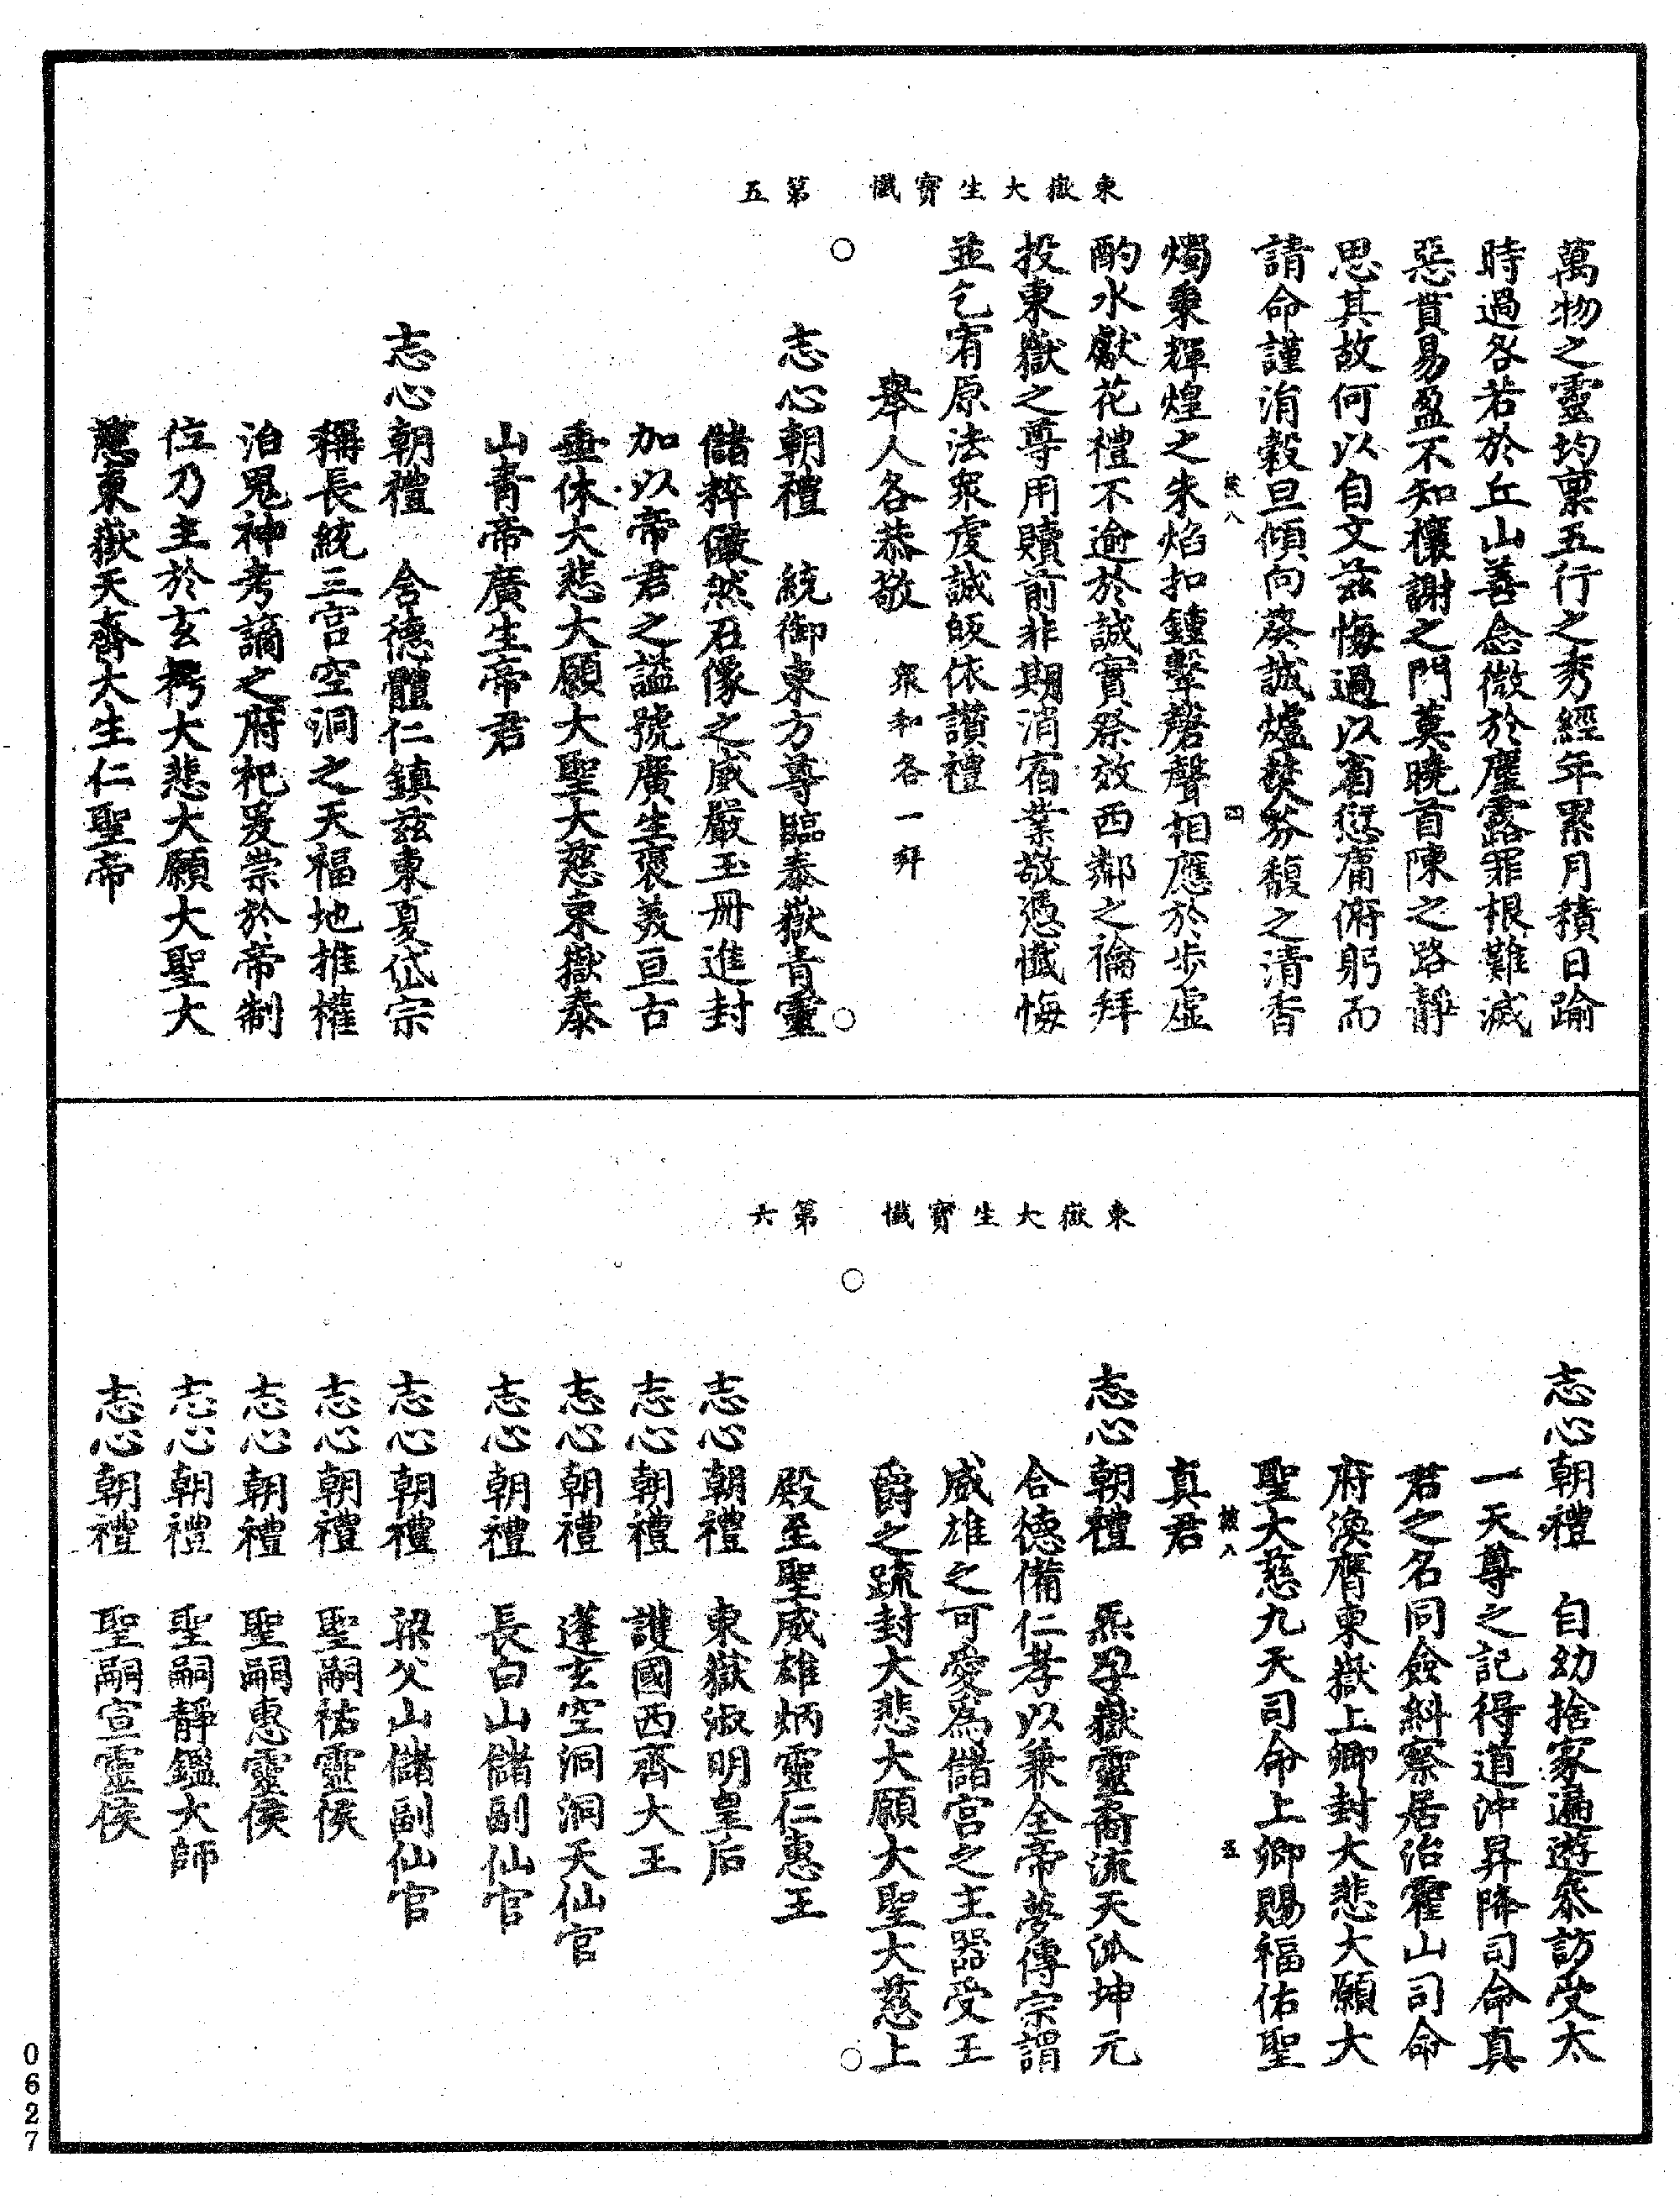 東嶽大生寶懺　第五
萬物之靈均稟五行之秀經年累月積日踰
時過咎若於丘山善念微於塵露罪根難滅
惡貫易盈不知禳謝之門莫曉首陳之路靜
思其故何以自文兹悔過以省愆庸俯躬而
請命謹涓穀旦傾向葵誠爐焚芬馥之清香
八　四
燭秉輝煌之朱焰扣鍾擊磬聲相應於步虛
酌水獻花禮不逾於誠實祭效西鄰之禴拜
投東嶽之尊用贖前非期消宿業敬憑懺悔
並乞宥原法眾虔誠皈依讚禮
舉人各恭敬　眾和各一拜
志心朝禮　統御東方尊臨泰嶽青靈
儲粹儼然石像之威嚴玉冊進封
加以帝君之謚號廣生褒美亘古
垂休大悲大願大聖大慈東嶽泰
山青帝廣生帝君
志心朝禮　含德體仁鎮兹東夏岱宗
稱長統三宮空洞之天福地推權
治鬼神考謫之府祀爰崇於帝制
位乃主於玄樞大悲大願大聖大
慈東嶽天齊大生仁聖帝
東嶽大生寶懺　第六
志心朝禮　自幼捨家遍遊叅訪受太
一天尊之記得道沖昇降司命真
君之名同僉糾察居治霍山司命
府渙膺東嶽上卿封大悲大願大
聖大慈九天司命上卿賜福佑聖
八　五
真君
志心朝禮　炁孕嶽靈裔流天派坤元
合德備仁孝以兼全帝夢傳宗謂
威雄之可愛為儲宮之主器受王
爵之疏封大悲大願大聖大慈上
殿至聖威雄炳靈仁惠王
志心朝禮　東嶽淑明皇后
志心朝禮　護國西齊大王
志心朝禮　蓬玄空洞洞天仙官
志心朝禮　長白山儲副仙官
志心朝禮　梁父山儲副仙官
志心朝禮　聖嗣祐靈侯
志心朝禮　聖嗣惠靈侯
志心朝禮　聖嗣靜鑑大師
志心朝禮　聖嗣宣靈侯
0627